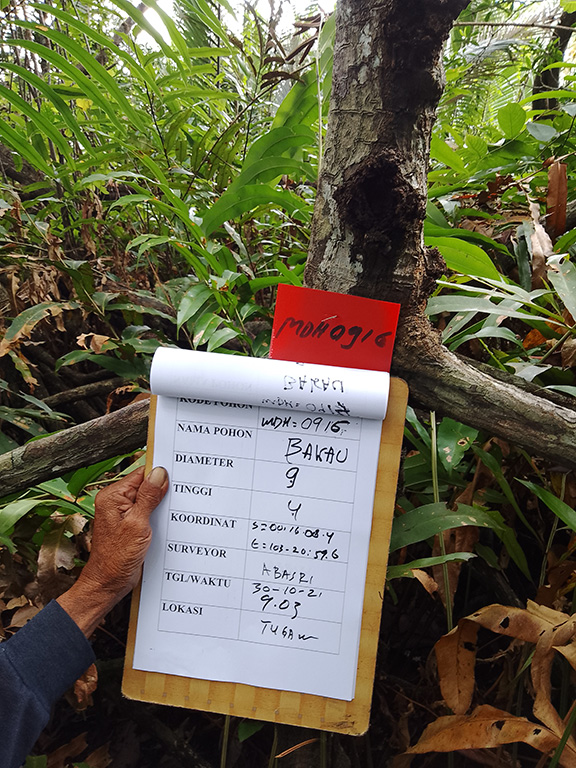 MDH 0916
BAKAU
KODE POHON MDH=0916
NAMA POHON BAKAU
DIAMETER 9
TINGGI 4
KOORDINAT S=00:16.08.4
E=103-20:59.6
SURVEYOR ABASRI
TGL/WAKTU 30-10-21
9.03
LOKASI